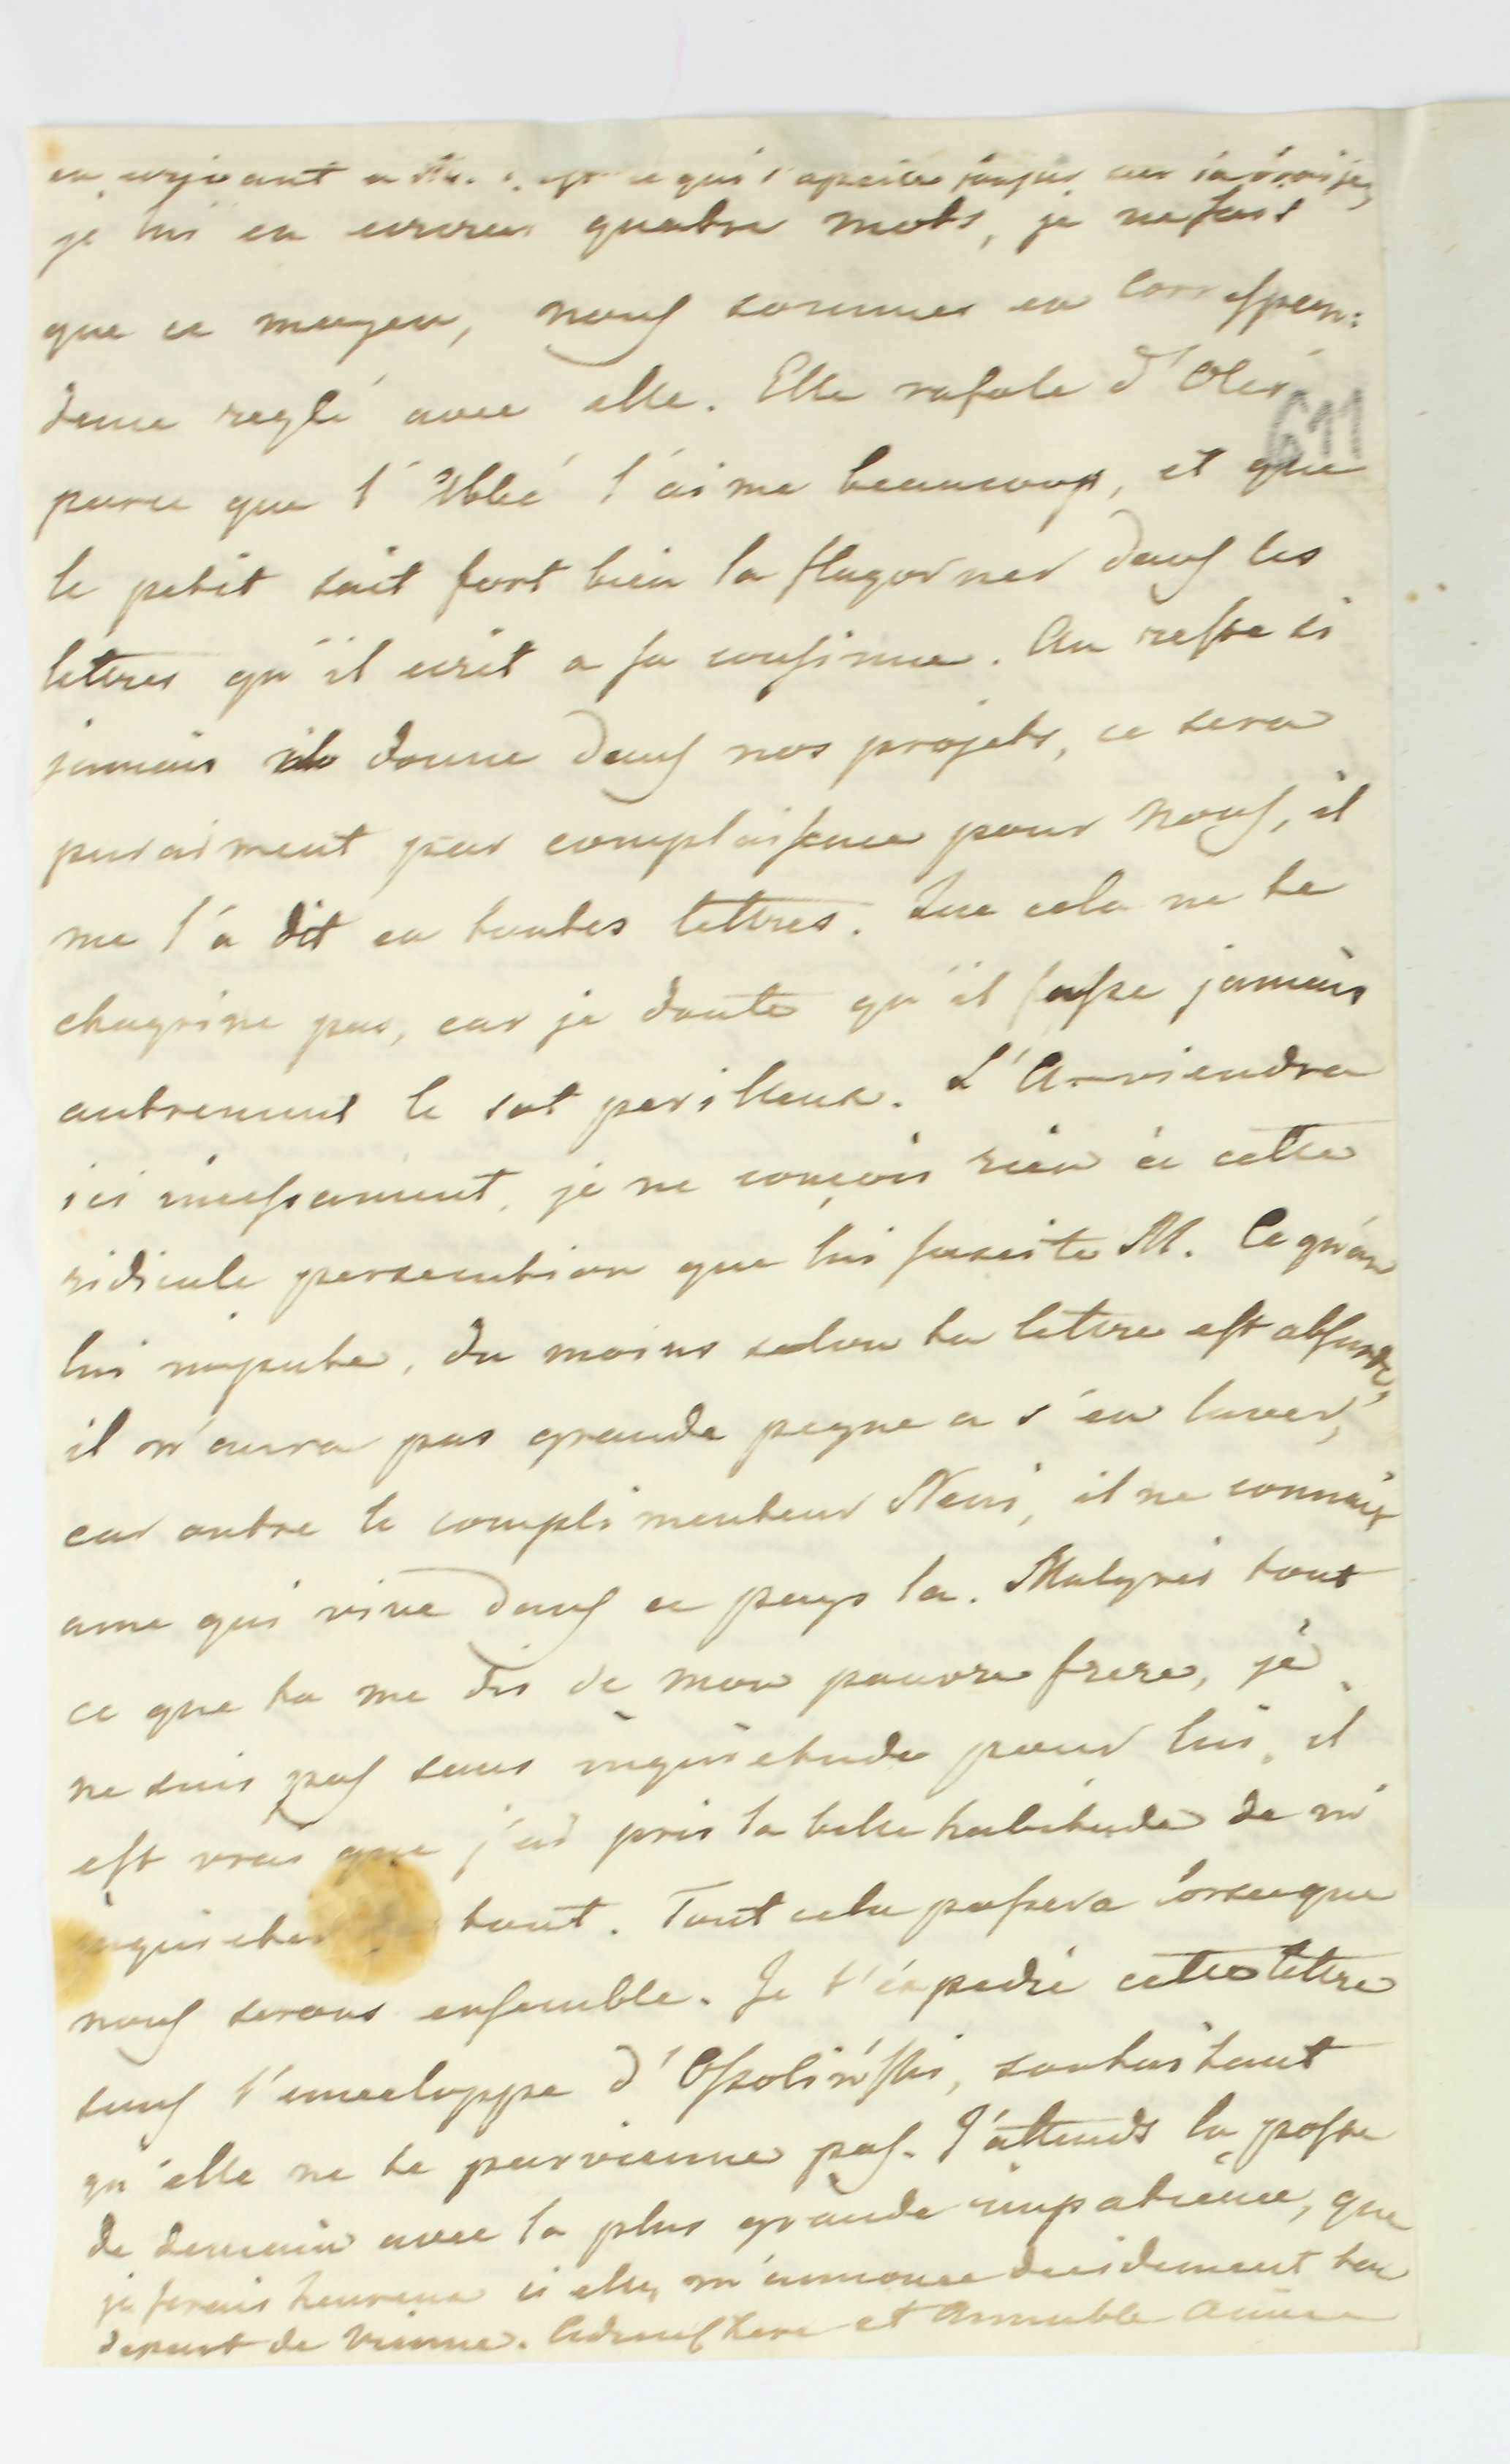 je lui en ecrirai quatre mots, je ne sais
que ce moyen, nous sommes en correspon:
dence reglé avec elle. Elle rafole d'Oles
611
parce que l'Abbé l'aime beaucoup, et que
le petit sait fort bien la flagorner dans les
lettres qu'il ecrit a sa cousinne. Au reste si
jamais il donne dans nos projets, ce sera
puraiment par complaisance pour nous, il
me l'a dit en toutes lettres. Que cela ne te
chagrine pas, car je doute qu'il fasse jamais
autrement le sot perilleux. L'A. viendra
ici incessament, je ne conçois rien à cette
ridicule persecution que lui suscite M. Ce qu'on
lui impute, du moins selon ta lettre est absurde,
il n'aura pas grande peyne a s'en laver,
car outre le complimenteur Neni, il ne connaix
ame qui vive dans ce pays la. Malgrés tout
ce que tu me dis de mon pauvre frere, je
ne suis pas sans inquietude pour lui, il
est vrai que j'ai pris la belle habitude de m'
inquieter tout. Tout cela passera lorseque
nous serons ensemble. Je t'expedie cette lettre
sous l'enveeloppe d'Ossoliński, souhaitant
qu'elle ne te parvienne pas. J'attends la poste
de demain avec la plus grande impatience, que
je serais heureux si elle m'annonce decidement ton
depart de Vienne. Adieu chere et Aimable Amie